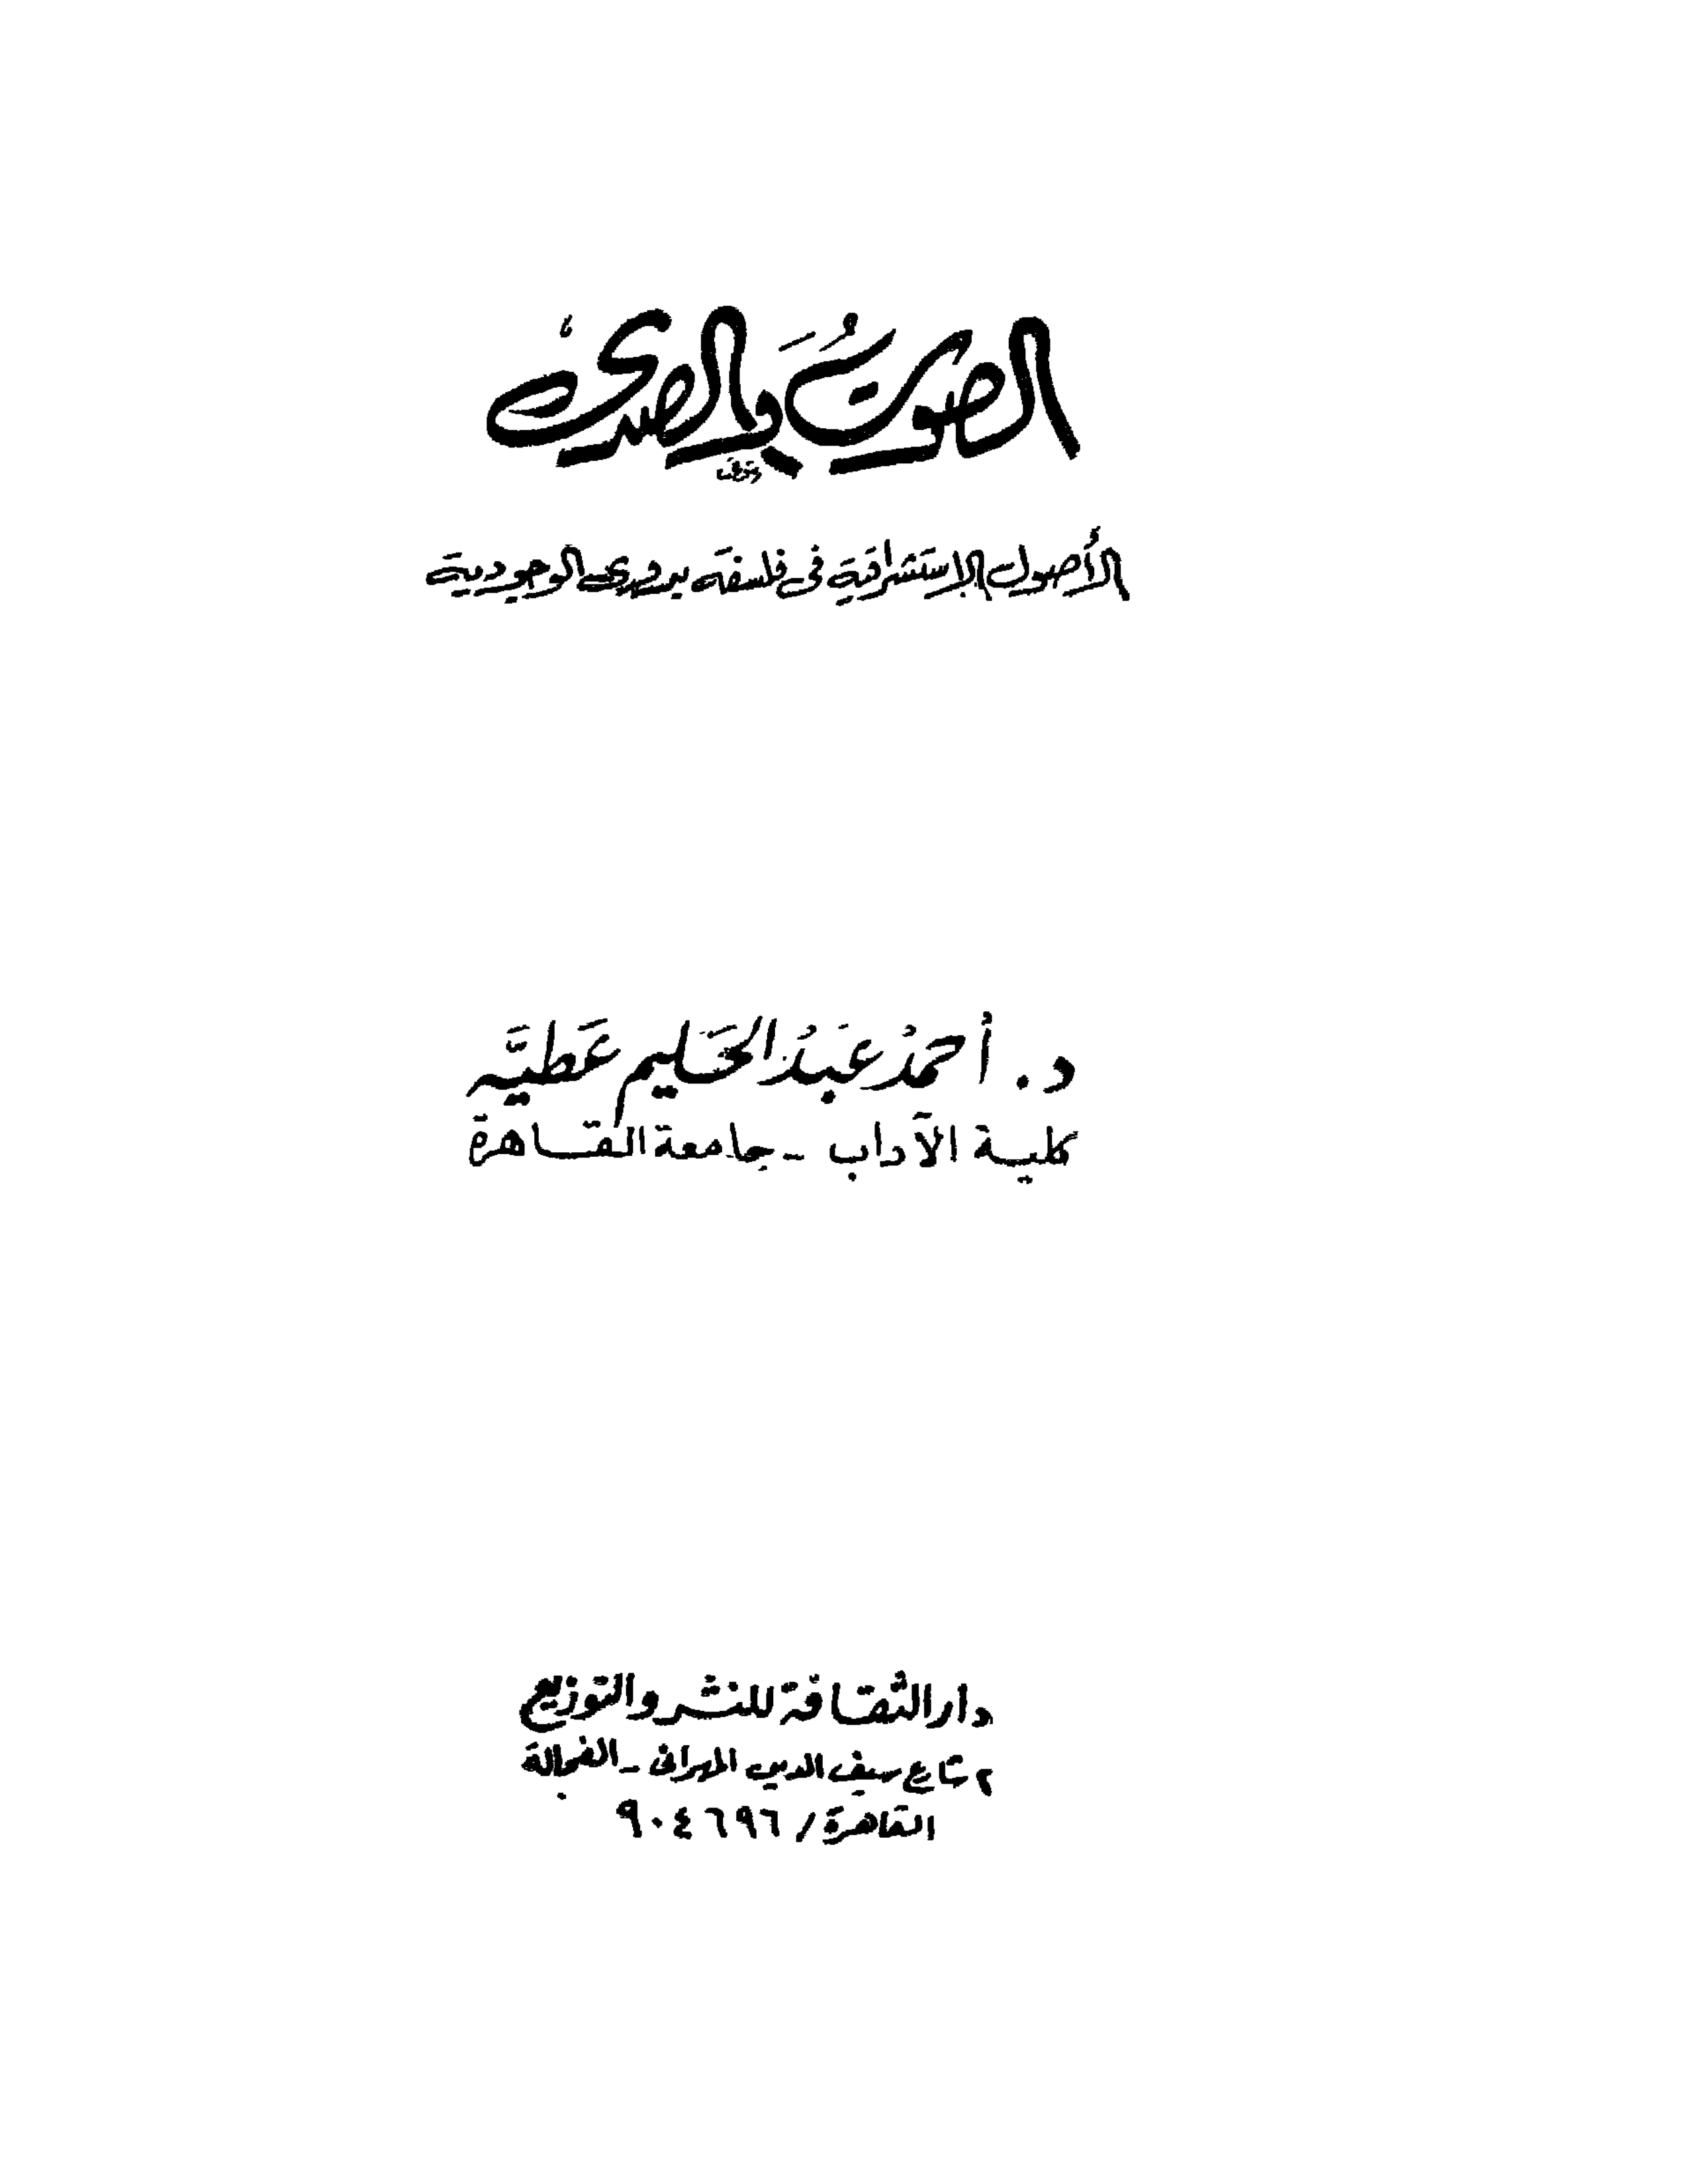 الصوتُ وَالصدى
الأصول الاستشراقية فى فلسفة بدوى الوجودية
د. أحمدْ عَبدُ الحَليم عَطيَّه
كلية الآداب - جامعة القاهرة
دار الثقافة للنشر والتوزيع
٢ شارع سيف الدين المهرانى - الفجالة
القاهرة / ٩٠٤٦٩٦